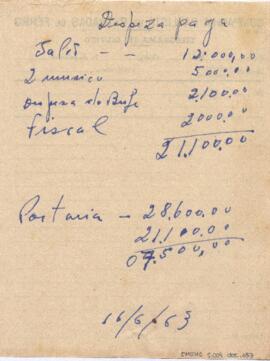 Despeza paga
Salão - - 12.000,00
2 musico 5000,00
despeza do Bufe 2.100,00
Fiscal 2000,00
21.100,00
Portaria - 28.600,00
21.100,00
07.500,00
16/6/63